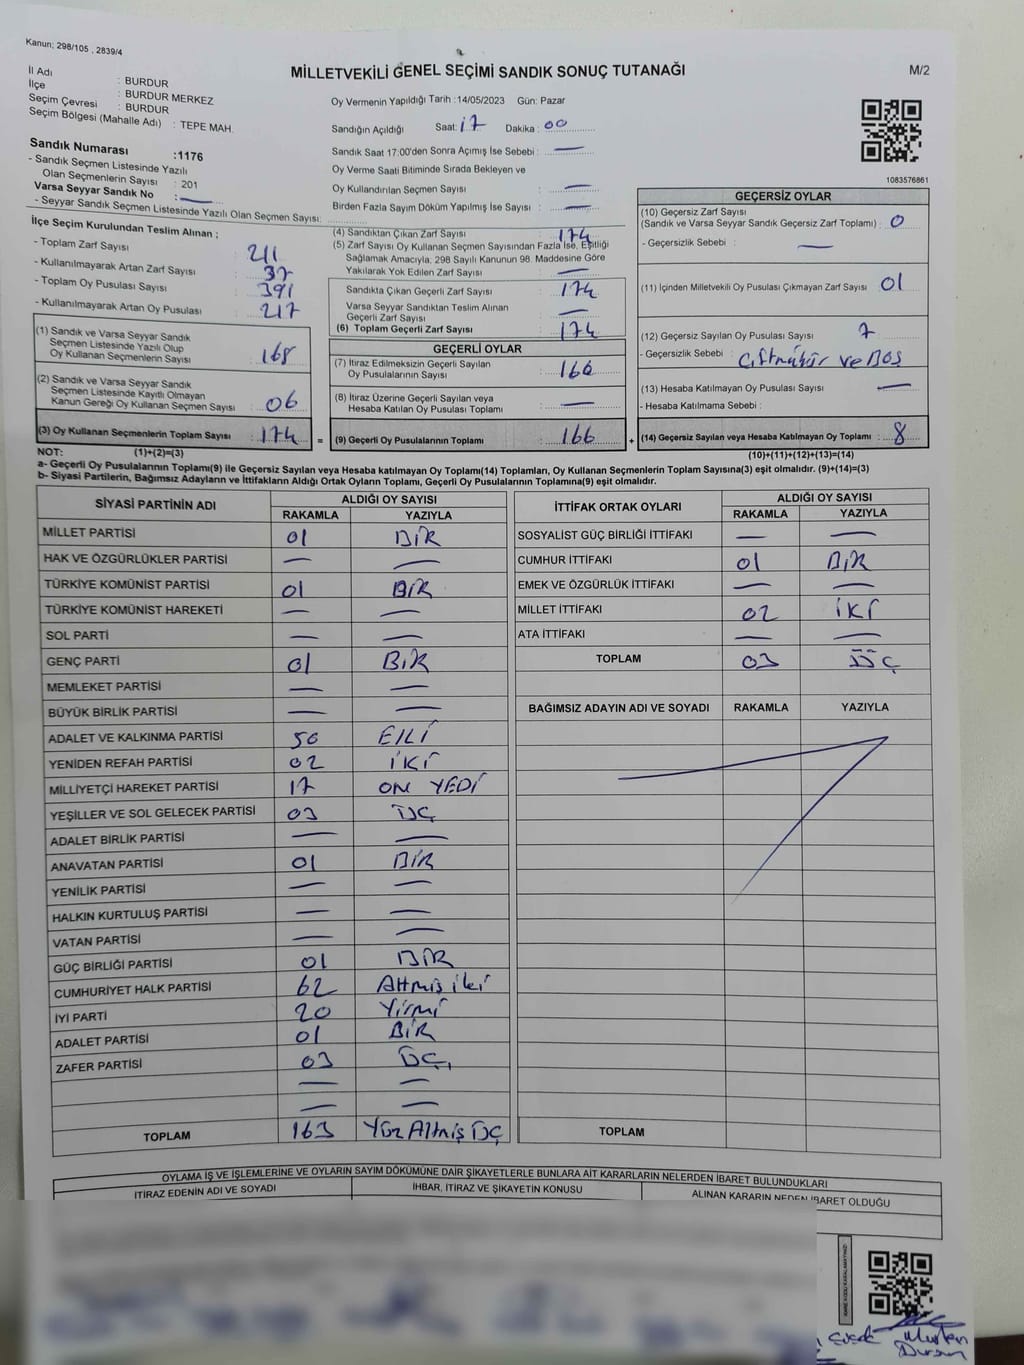 Kanun; 298/105 , 2839/4
MİLLETVEKİLİ GENEL SEÇİMİ SANDIK SONUÇ TUTANAĞI
M/2
İl Adı : BURDUR
İlçe : BURDUR MERKEZ
Seçim Çevresi : BURDUR
Seçim Bölgesi (Mahalle Adı) : TEPE MAH.
Sandık Numarası :1176
- Sandık Seçmen Listesinde Yazılı
Olan Seçmenlerin Sayısı : 201
Varsa Seyyar Sandık No : —
- Seyyar Sandık Seçmen Listesinde Yazılı Olan Seçmen Sayısı:
Oy Vermenin Yapıldığı Tarih :14/05/2023 Gün: Pazar
Sandığın Açıldığı Saat: 17 Dakika : 00
Sandık Saat 17:00'den Sonra Açımış İse Sebebi : —
Oy Verme Saati Bitiminde Sırada Bekleyen ve
Oy Kullandırılan Seçmen Sayısı : —
Birden Fazla Sayım Döküm Yapılmış İse Sayısı : —
1083576861
İlçe Seçim Kurulundan Teslim Alınan ;
- Toplam Zarf Sayısı : 211
- Kullanılmayarak Artan Zarf Sayısı : 37
- Toplam Oy Pusulası Sayısı : 391
- Kullanılmayarak Artan Oy Pusulası : 217
(1) Sandık ve Varsa Seyyar Sandık
Seçmen Listesinde Yazılı Olup
Oy Kullanan Seçmenlerin Sayısı : 168
(2) Sandık ve Varsa Seyyar Sandık
Seçmen Listesinde Kayıtlı Olmayan
Kanun Gereği Oy Kullanan Seçmen Sayısı : 06
(3) Oy Kullanan Seçmenlerin Toplam Sayısı : 174
(4) Sandıktan Çıkan Zarf Sayısı : 174
(5) Zarf Sayısı Oy Kullanan Seçmen Sayısından Fazla İse, Eşitliği
Sağlamak Amacıyla, 298 Sayılı Kanunun 98. Maddesine Göre
Yakılarak Yok Edilen Zarf Sayısı : —
Sandıkta Çıkan Geçerli Zarf Sayısı : 174
Varsa Seyyar Sandıktan Teslim Alınan
Geçerli Zarf Sayısı : —
(6) Toplam Geçerli Zarf Sayısı : 174
GEÇERLİ OYLAR
(7) İtiraz Edilmeksizin Geçerli Sayılan
Oy Pusulalarının Sayısı : 166
(8) İtiraz Üzerine Geçerli Sayılan veya
Hesaba Katılan Oy Pusulası Toplamı : —
= (9) Geçerli Oy Pusulalarının Toplamı : 166
GEÇERSİZ OYLAR
(10) Geçersiz Zarf Sayısı
(Sandık ve Varsa Seyyar Sandık Geçersiz Zarf Toplamı) : 0
- Geçersizlik Sebebi : —
(11) İçinden Milletvekili Oy Pusulası Çıkmayan Zarf Sayısı : 01
(12) Geçersiz Sayılan Oy Pusulası Sayısı : 7
- Geçersizlik Sebebi : Çift mühür ve BOŞ
(13) Hesaba Katılmayan Oy Pusulası Sayısı : —
- Hesaba Katılmama Sebebi :
+ (14) Geçersiz Sayılan veya Hesaba Katılmayan Oy Toplamı : 8
NOT: (1)+(2)=(3) (10)+(11)+(12)+(13)=(14)
a- Geçerli Oy Pusulalarının Toplamı(9) ile Geçersiz Sayılan veya Hesaba katılmayan Oy Toplamı(14) Toplamları, Oy Kullanan Seçmenlerin Toplam Sayısına(3) eşit olmalıdır. (9)+(14)=(3)
b- Siyasi Partilerin, Bağımsız Adayların ve İttifakların Aldığı Ortak Oyların Toplamı, Geçerli Oy Pusulalarının Toplamına(9) eşit olmalıdır.
SİYASİ PARTİNİN ADI ALDIĞI OY SAYISI
RAKAMLA YAZIYLA
MİLLET PARTİSİ 01 BİR
HAK VE ÖZGÜRLÜKLER PARTİSİ — —
TÜRKİYE KOMÜNİST PARTİSİ 01 BİR
TÜRKİYE KOMÜNİST HAREKETİ — —
SOL PARTİ — —
GENÇ PARTİ 01 BİR
MEMLEKET PARTİSİ — —
BÜYÜK BİRLİK PARTİSİ — —
ADALET VE KALKINMA PARTİSİ 50 ELLİ
YENİDEN REFAH PARTİSİ 02 İKİ
MİLLİYETÇİ HAREKET PARTİSİ 17 ON YEDİ
YEŞİLLER VE SOL GELECEK PARTİSİ 03 ÜÇ
ADALET BİRLİK PARTİSİ — —
ANAVATAN PARTİSİ 01 BİR
YENİLİK PARTİSİ — —
HALKIN KURTULUŞ PARTİSİ — —
VATAN PARTİSİ — —
GÜÇ BİRLİĞİ PARTİSİ 01 BİR
CUMHURİYET HALK PARTİSİ 62 Altmış iki
İYİ PARTİ 20 Yirmi
ADALET PARTİSİ 01 BİR
ZAFER PARTİSİ 03 ÜÇ
— —
— —
TOPLAM 163 Yüz Altmış ÜÇ
İTTİFAK ORTAK OYLARI ALDIĞI OY SAYISI
RAKAMLA YAZIYLA
SOSYALİST GÜÇ BİRLİĞİ İTTİFAKI — —
CUMHUR İTTİFAKI 01 BİR
EMEK VE ÖZGÜRLÜK İTTİFAKI — —
MİLLET İTTİFAKI 02 İKİ
ATA İTTİFAKI — —
TOPLAM 03 ÜÇ
BAĞIMSIZ ADAYIN ADI VE SOYADI RAKAMLA YAZIYLA
TOPLAM
OYLAMA İŞ VE İŞLEMLERİNE VE OYLARIN SAYIM DÖKÜMÜNE DAİR ŞİKAYETLERLE BUNLARA AİT KARARLARIN NELERDEN İBARET BULUNDUKLARI
İTİRAZ EDENİN ADI VE SOYADI İHBAR, İTİRAZ VE ŞİKAYETİN KONUSU ALINAN KARARIN NEDEN İBARET OLDUĞU
KARE KODU KARALAMAYINIZ!